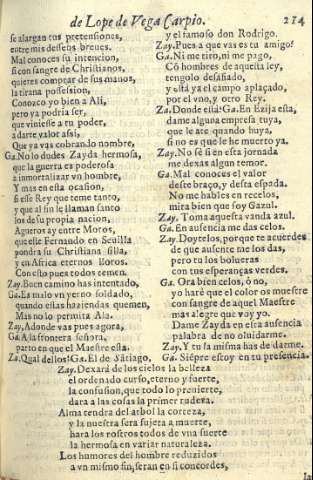 de Lope de Vega Carpio. 214
se alargan tus pretensiones,
entre mis desseos breues.
Mal conoces su intencion,
si con sangre de Christianos,
quieres comprar de sus manos,
la tirana possession,
Conozco yo bien a Ali,
pero ya podria ser,
que viniesse a tu poder,
a darte valor assi,
Que ya vas cobrando nombre,
Ga. No lo dudes Zayda hermosa,
que la guerra es poderosa
a immortalizar vn hombre,
Y mas en esta ocasion,
si esse Rey que teme tanto,
y que al fin le llaman santo
los de su propia nacion,
Agueros ay entre Moros,
que esse Fernando en Seuilla
pondra su Christiana silla,
y en Africa eternos lloros.
Con esto pues todos temen.
Zay. Buen camino has intentado,
Ga. Es malo vn yerno soldado,
quando ellas haziendas quemen,
Mas no lo permita Ala.
Zay, Adonde vas pues agora,
Ga. A la frontera señora,
parto en que el Maestre està.
Za. Qual dellos? Ga. El de Sãtiago,
y el famoso don Rodrigo.
Zay. Pues a que vas es tu amigo?
Ga. Ni me tiro, ni me pago,
Cõ hombres de aquesta ley,
tengolo desafiado,
y està ya el campo aplaçado,
por el vno, y otro Rey.
Za. Donde està? Ga. En Ezija esta,
dame alguna empresa tuya,
que le ate quando huya,
si no es que le he muerto ya.
Zay. No sè si en esta jornada
me dexas algun temor.
Ga. Mal conoces el valor
deste braço, y desta espada.
No me hables en rezelos,
mira bien que soy Gazul.
Zay. Toma aquesta vanda azul.
Ga. En ausencia me das celos.
Zay. Doytelos, porque te acuerdes
de que ausente me los das,
pero tu los bolueras
con tus esperanças verdes.
Ga. Ora bien celos, ò no,
y o harè que el color os muestre
con sangre de aquel Maestre
mas alegre que voy yo.
Dame Zayda en esta ausencia
palabra de no oluidarme.
Zay. Y tu la misma has de darme.
Ga. Siẽpre estoy en tu presencia.
Zay. Dexarà de los cielos la belleza
el ordenado curso, eterno y fuerte,
la confusion, que todo lo prouierte,
dara a las cosas la primer rudeza.
Alma tendra del arbol la corteza,
y la nuestra sera sujeta a muerte,
hara los rostros todos de vna suerte
la hermosa en variar naturaleza.
Los humores del hombre reduzidos
a vn mismo fin, seran en si concordes,